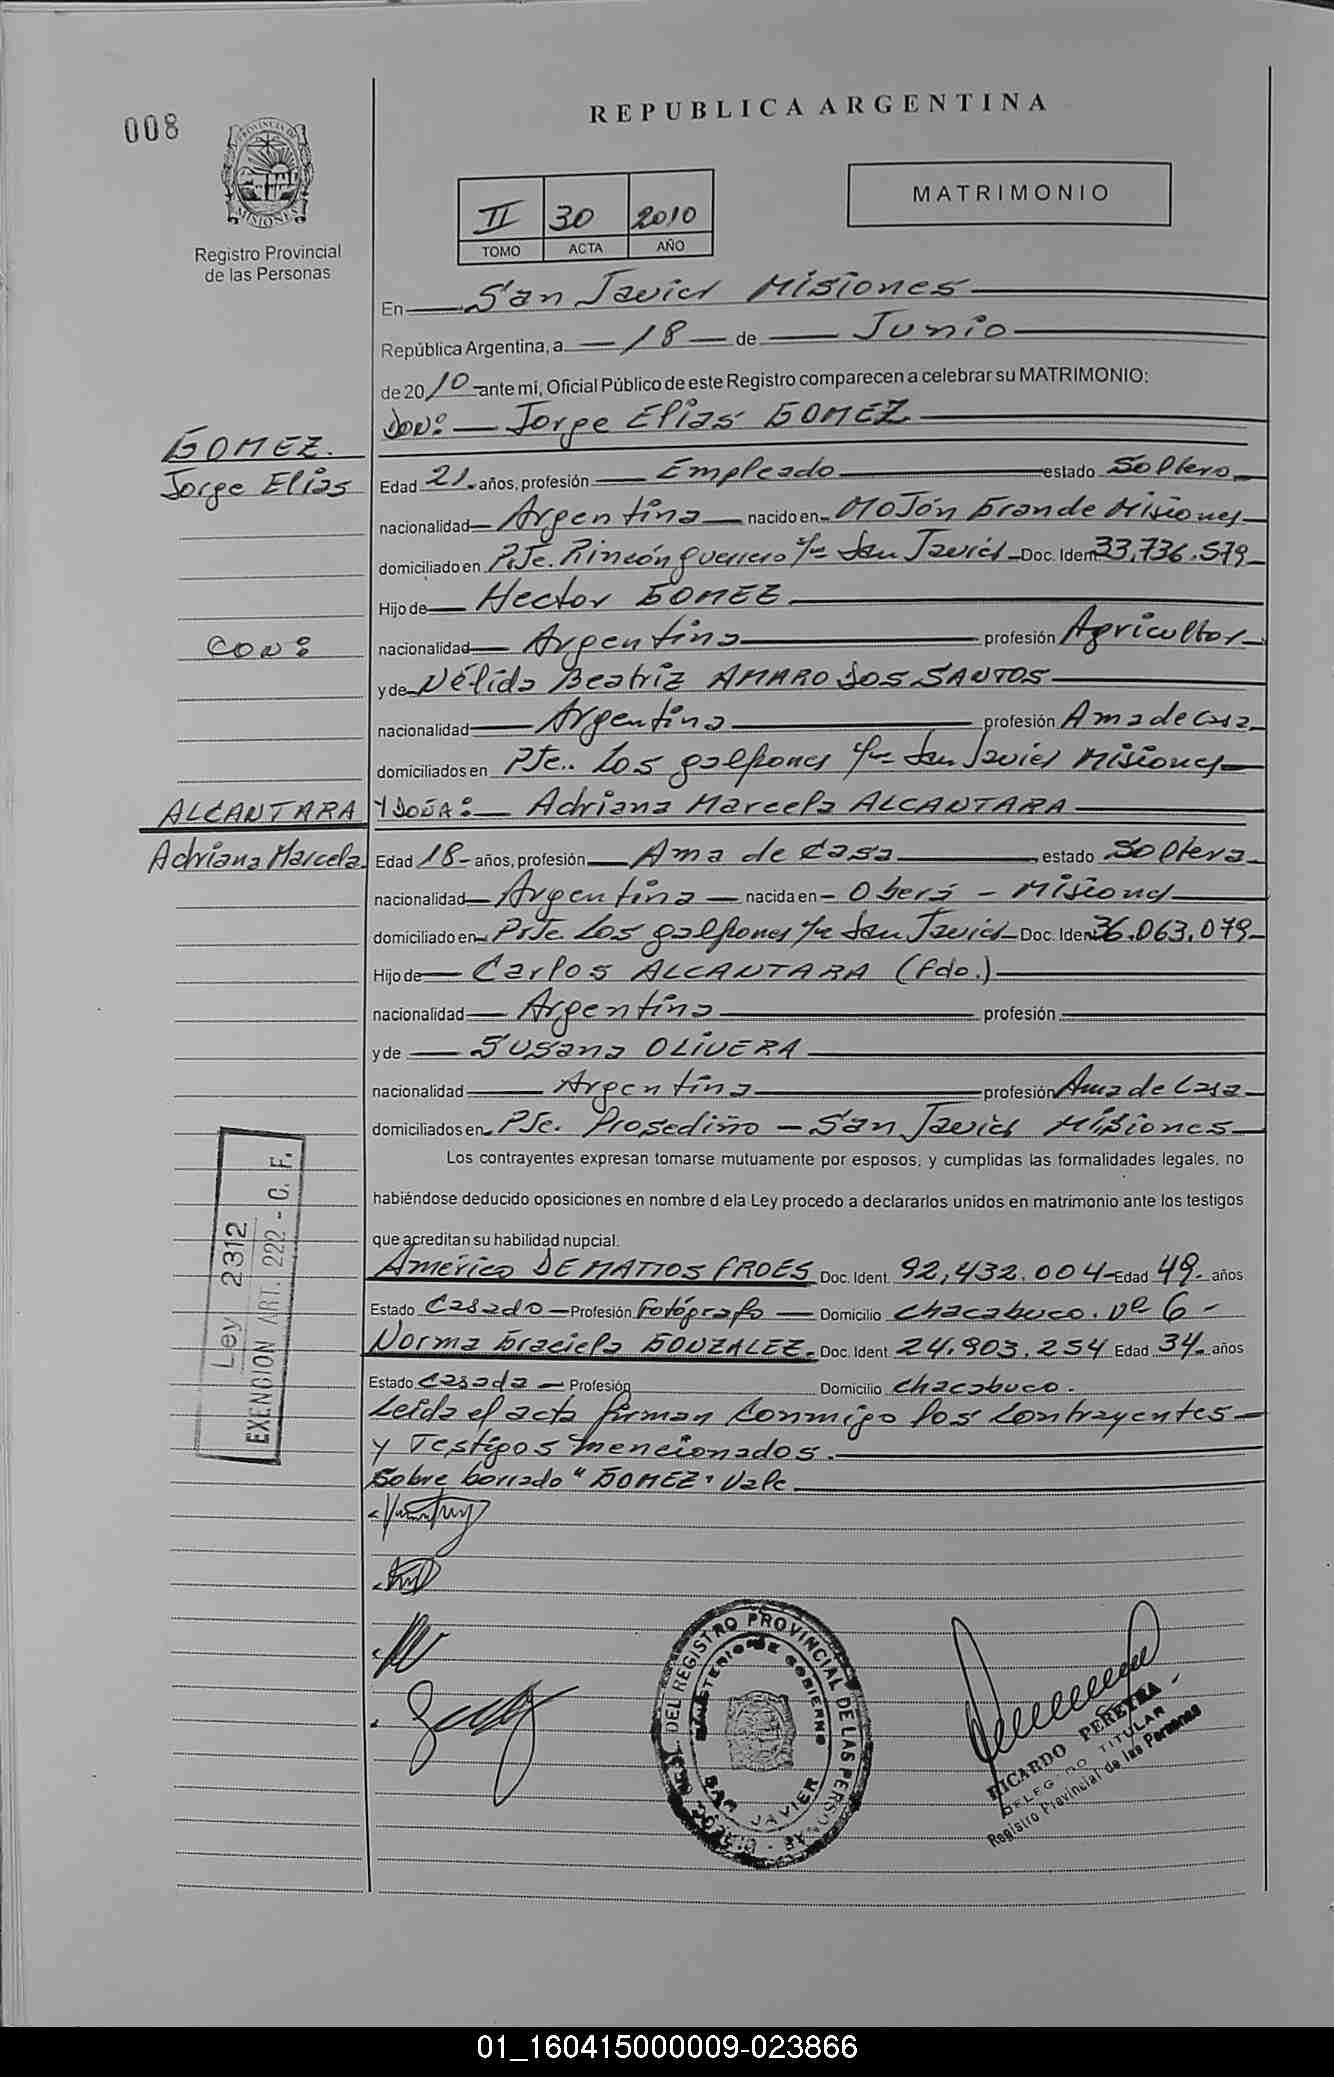 008
REPUBLICA ARGENTINA
PROVINCIA DE
MISIONES
Registro Provincial
de las Personas
MATRIMONIO
II 30 2010
TOMO ACTA AÑO
En San Javier Misiones
República Argentina, a 18 de Junio
de 2010 ante mi, Oficial Público de este Registro comparecen a celebrar su MATRIMONIO:
Don: Jorge Elías GOMEZ
GOMEZ.
Jorge Elías
Edad 21. años, profesión Empleado estado Soltero
nacionalidad Argentina nacido en Mojón Grande Misiones
domiciliado en Pje. Rincón guerrero San Javier Doc. Ident 33,736.579
Hijo de Hector GOMEZ
CON:
nacionalidad Argentina profesión Agricultor
y de Nélida Beatriz AMARO DOS SANTOS
nacionalidad Argentina profesión Ama de casa
domiciliados en Pje.. Los galpones San Javier Misiones
ALCANTARA
Y DOÑA: Adriana Marcela ALCANTARA
Adriana Marcela
Edad 18 años, profesión Ama de Casa estado Soltera
nacionalidad Argentina nacida en Oberá - Misiones
domiciliado en Pje. Los galpones San Javier Doc. Iden 36.063.079
Hijo de Carlos ALCANTARA (fdo.)
nacionalidad Argentina profesión
y de Susana OLIVERA
nacionalidad Argentina profesión Ama de Casa
domiciliados en Pje. Prosediño - San Javier Misiones
Los contrayentes expresan tomarse mutuamente por esposos, y cumplidas las formalidades legales, no
habiéndose deducido oposiciones en nombre d ela Ley procedo a declararlos unidos en matrimonio ante los testigos
que acreditan su habilidad nupcial.
Américo DE MATTOS FROES Doc. Ident. 92,432.004 Edad 49. años
Estado Casado Profesión Fotógrafo Domicilio Chacabuco. Nº 6
Norma Graciela GONZALEZ. Doc. Ident. 24.903.254 Edad 34. años
Estado Casada Profesión Domicilio Chacabuco.
Leída el acta firman conmigo los contrayentes
y Testigos mencionados.
Sobre borrado "GOMEZ" Vale
Ley 2312
EXENCION ART. 222 - C. F.
DEL REGISTRO PROVINCIAL DE LAS PERSONAS
MINISTERIO DE GOBIERNO
SAN JAVIER
RICARDO PEREYRA
DELEGADO TITULAR
Registro Provincial de las Personas
01_160415000009-023866